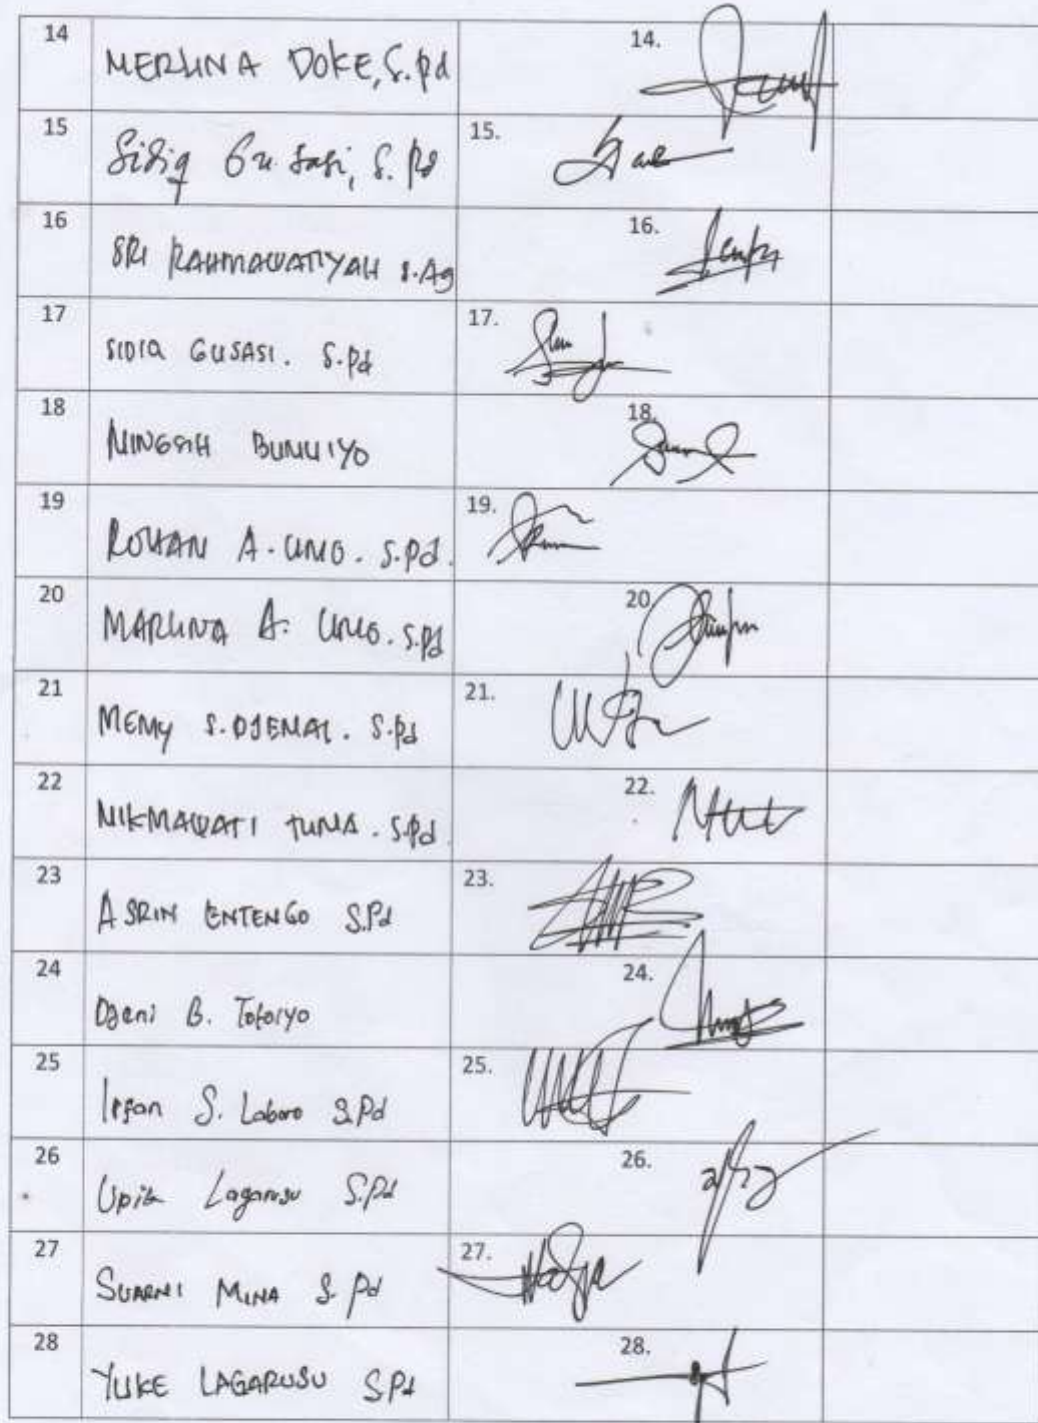 14 MERLINA DOKE, S.Pd 14.
15 Sidiq Gusasi, S.Pd 15.
16 SRI RAHMAWATIYAH S.Ag 16.
17 SIDIQ GUSASI. S.Pd 17.
18 NINGSIH BUNUIYO 18.
19 ROHAN A. UNO. S.Pd. 19.
20 MARLINA A. UNO. S.Pd 20
21 MEMY S. DJEMAL. S.Pd 21.
22 NIKMAWATI TUNA. S.Pd 22.
23 ASRIN ENTENGO S.Pd 23.
24 Djeni B. 24.
25 Irfan S. Laboro S.Pd 25.
26 Upik Lagarusu S.Pd 26.
27 SUARNI MINA S.Pd 27.
28 YUKE LAGARUSU S.Pd 28.